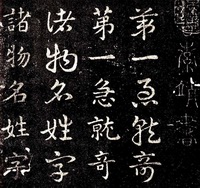 第一急就奇
第一急就奇
諸物名姓字
諸物名姓字